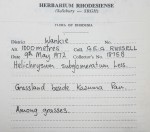 HERBARIUM RHODESIENSE
(Salisbury — SRGH)
FLORA OF RHODESIA
District Wankie
Alt. 1000 metres Coll. G.E.G. RUSSELL
Date 9th May 1972 Collector's No.
Helichrysum subglomeratum Less.
Grassland beside Kazuma Pan.
Among grasses.